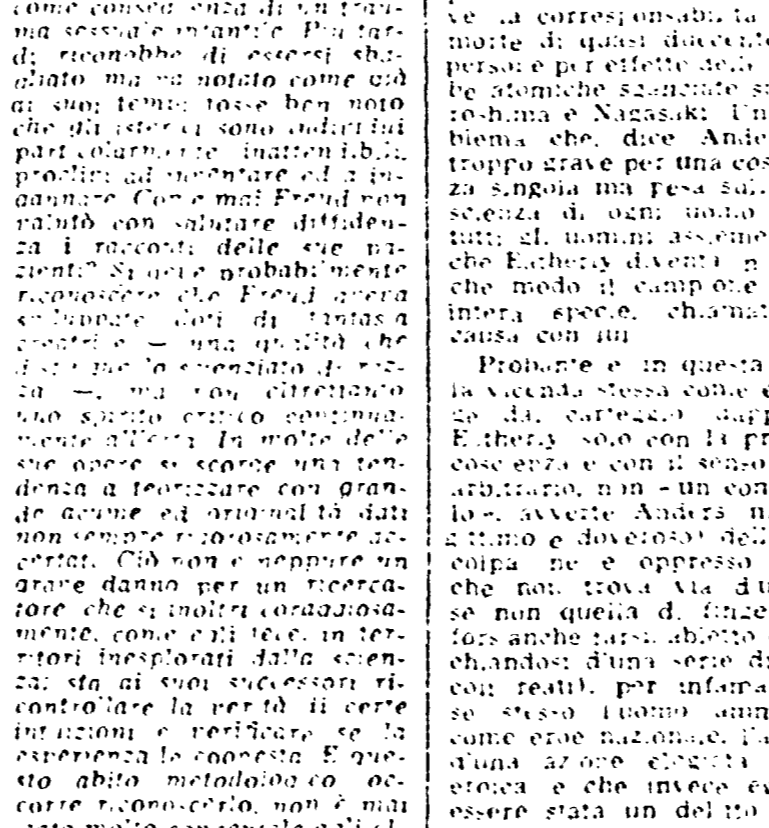 come conseguenza di un trau-
ma sessuale infantile. Più tar-
di riconobbe di essersi sba-
gliato ma va notato come già
ai suoi tempi fosse ben noto
che gli isterici sono individui
particolarmente inattendibili,
proclivi ad inventare ed a in-
gannare. Come mai Freud non
valutò con salutare diffiden-
za i racconti delle sue pa-
zienti? Si deve probabilmente
riconoscere che Freud aveva
sviluppate doti di fantasia
creatrice — una qualità che
lo scienziato di raz-
za —, ma non altrettanto
uno spirito critico continua-
mente all'erta. In molte delle
sue opere si scorge una ten-
denza a teorizzare con gran-
de acume ed originalità dati
non sempre rigorosamente ac-
certati. Ciò non è neppure un
grave danno per un ricerca-
tore che si inoltri coraggiosa-
mente, come egli fece, in ter-
ritori inesplorati dalla scien-
za: sta ai suoi successori ri-
controllare la verità di certe
intuizioni e verificare se la
esperienza le coonesta. E que-
sto abito metodologico oc-
corre riconoscerlo, non è mai
stato molto congeniale agli
ve la corresponsabilità
morte di quasi duecento
persone per effetto delle
be atomiche sganciate su
roshima e Nagasaki. Un
blema che, dice Ande
troppo grave per una cos
za singola ma pesa sul
scienza di ogni uomo
tutti gli uomini assieme
che Eatherly diventa in
che modo il campione
intera specie, chiamat
causa con lui
Probante è in questa
la vicenda stessa come e
ge dal carteggio
Eatherly solo con la pr
coscienza e con il senso
arbitrario, non «un con
lo», avverte Anders m
gittimo e doveroso) dell
colpa ne è oppresso
che non trova via d'u
se non quella di finge
fors'anche farsi, abietto
chiandosi d'una serie di
con reati), per infama
se stesso l'uomo amm
come eroe nazionale, l'a
d'una azione elogiata
eroica e che invece ev
essere stata un delitto